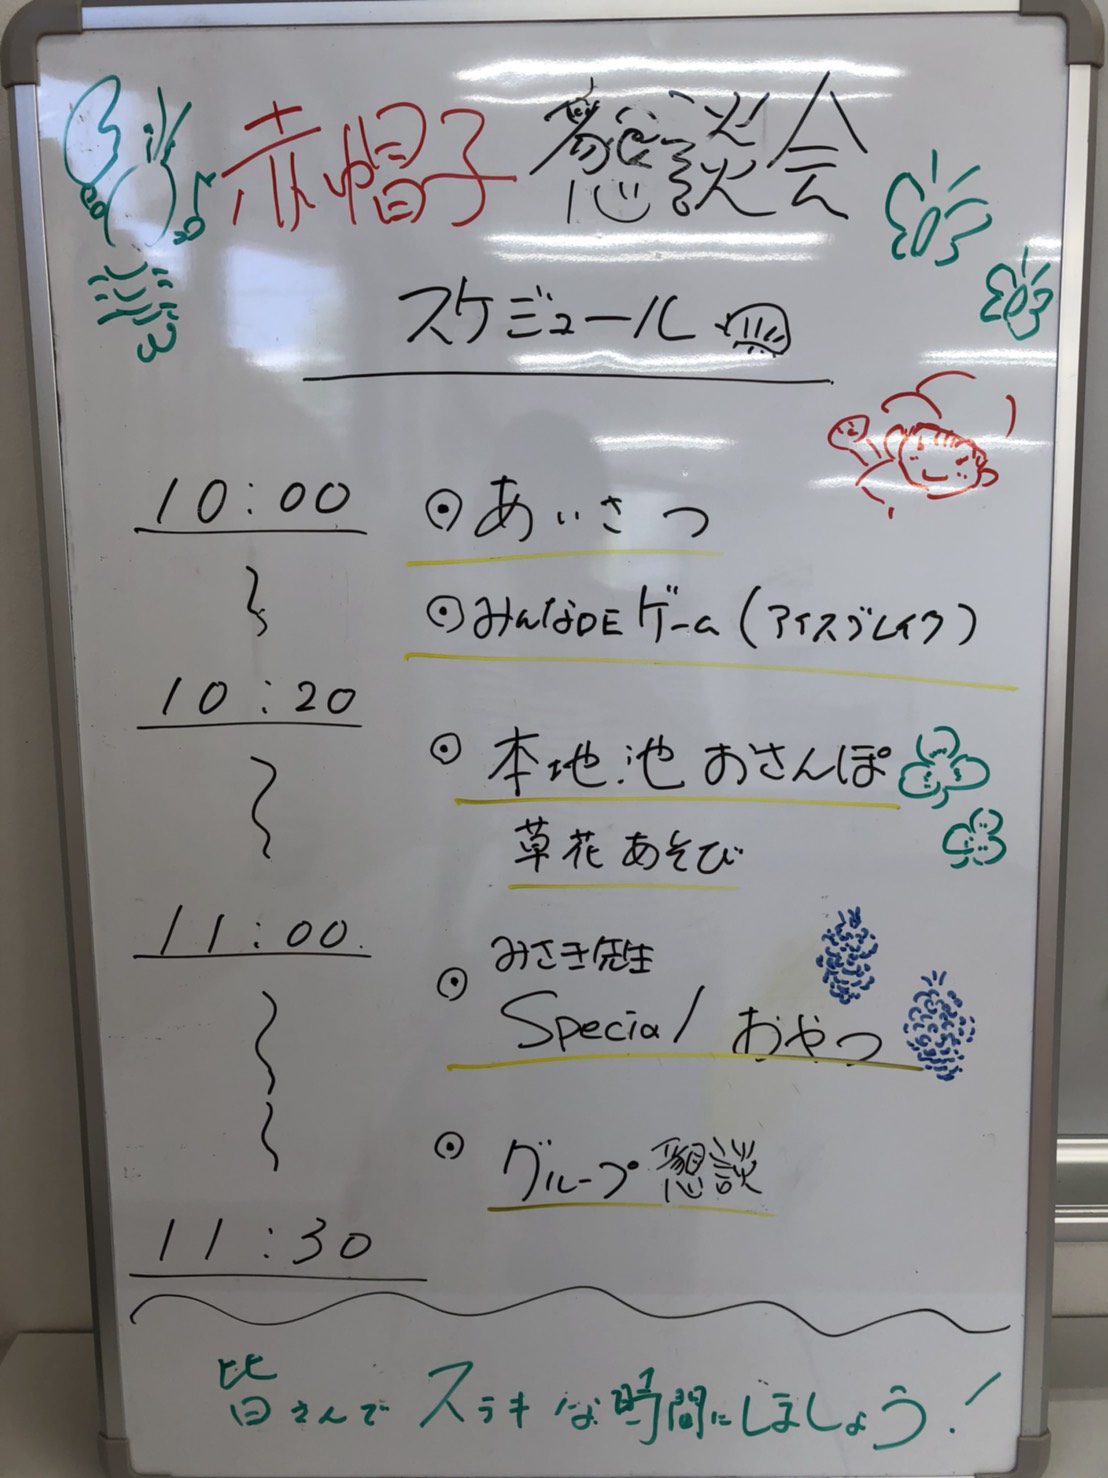 赤帽子 懇談会
スケジュール
10:00
◉ あいさつ
◉ みんなDE ゲーム (アイスブレイク)
10:20
◉ 本地池 おさんぽ
草花 あそび
11:00
みさき先生
◉ Special おやつ
◉ グループ 懇談
11:30
皆さんで ステキな時間にしましょう!